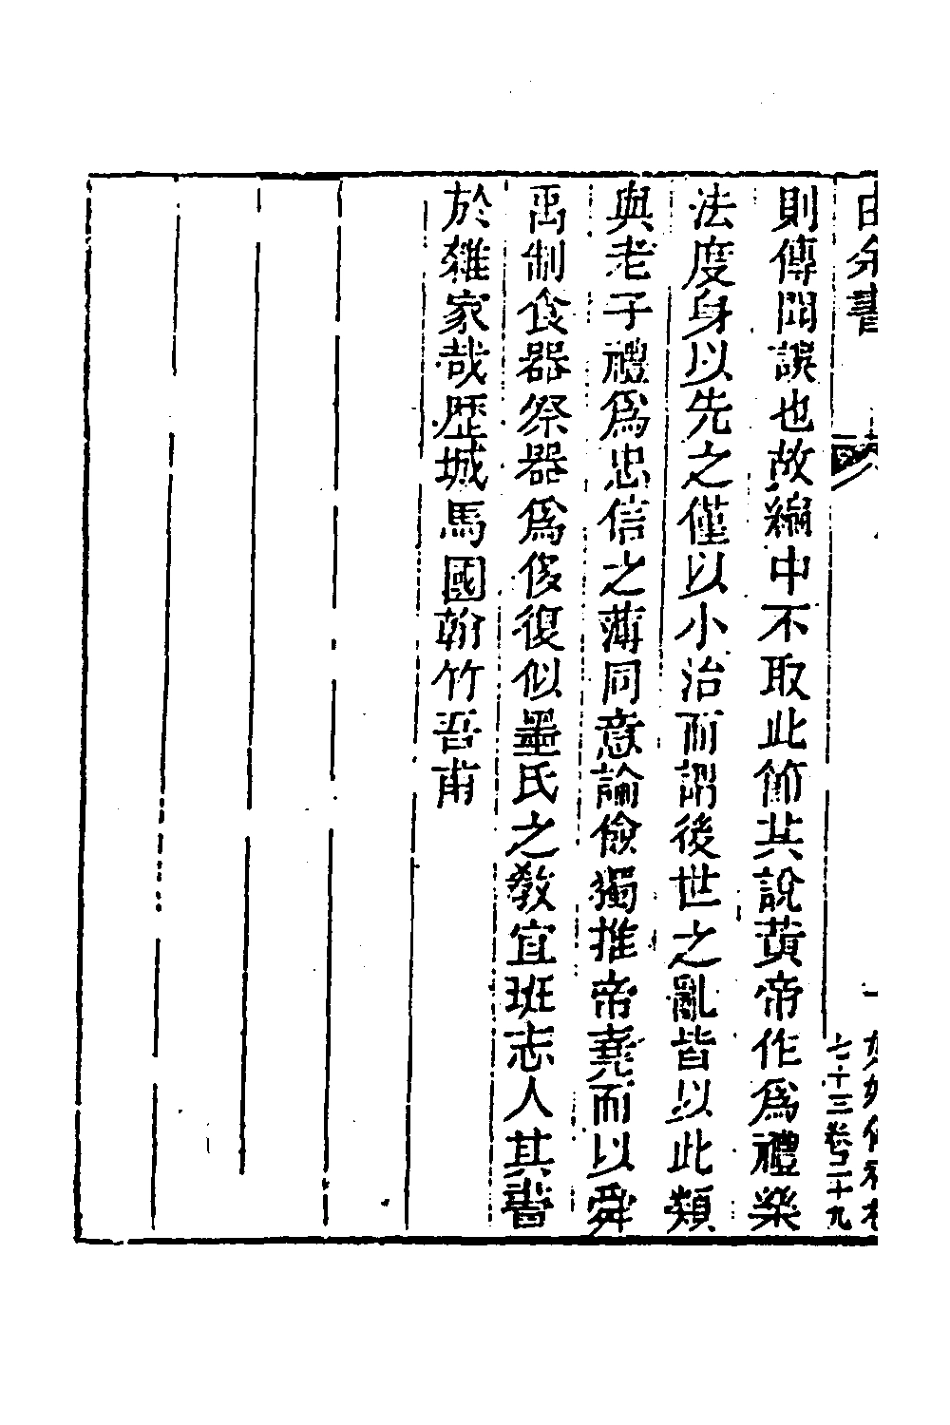 七十三卷二十九
則傳聞誤也故編中不取此節其說黃帝作爲禮樂
法度身以先之僅以小治而謂後世之亂皆以此類
與老子禮爲忠信之薄同意論儉獨推帝堯而以舜
禹制食器祭器爲侈復似墨氏之敎宜班志人其書
於雜家哉歷城馬國翰竹吾甫